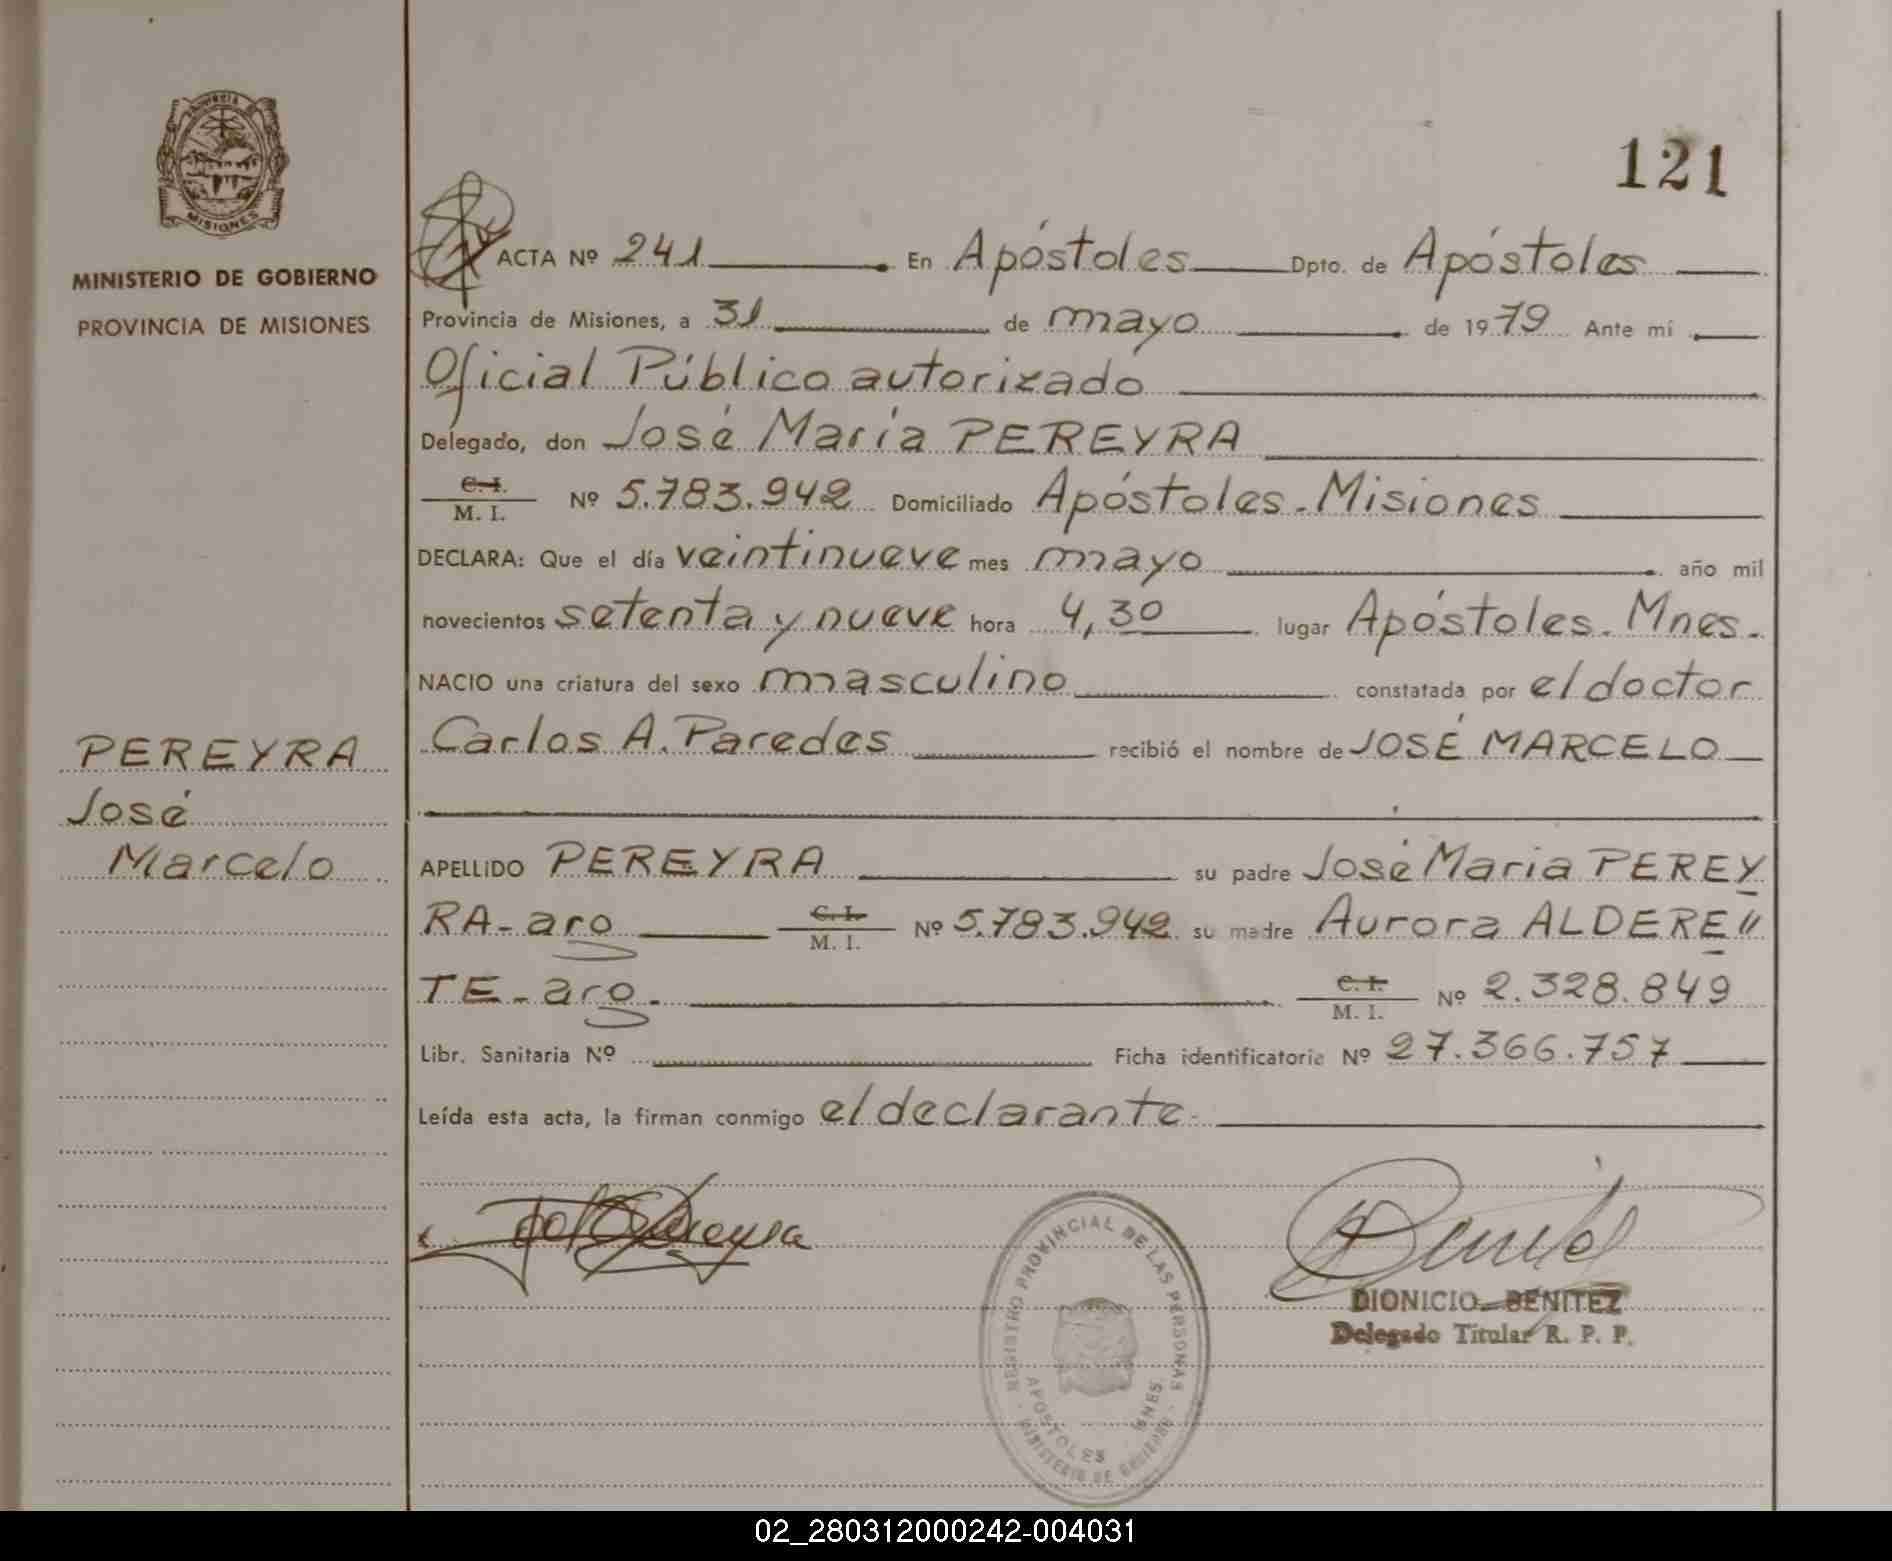 PROVINCIA DE
MISIONES
MINISTERIO DE GOBIERNO
PROVINCIA DE MISIONES
PEREYRA
José
Marcelo
121
ACTA Nº 241 En Apóstoles Dpto. de Apóstoles
Provincia de Misiones, a 31 de mayo de 1979 Ante mí
Oficial Público autorizado
Delegado, don José María PEREYRA
C. I.
M. I. Nº 5.783.942 Domiciliado Apóstoles - Misiones
DECLARA: Que el día veintinueve mes mayo año mil
novecientos setenta y nueve hora 4,30 lugar Apóstoles. Mnes.
NACIO una criatura del sexo masculino constatada por el doctor
Carlos A. Paredes recibió el nombre de JOSÉ MARCELO
APELLIDO PEREYRA su padre José Maria PEREY
RA - aro C. I. M. I. Nº 5.783.942 su madre Aurora ALDERE〃
TE - aro. C. I. M. I. Nº 2.328.849
Libr. Sanitaria Nº Ficha identificatoria Nº 27.366.757
Leída esta acta, la firman conmigo el declarante.
REGISTRO PROVINCIAL DE LAS PERSONAS
APOSTOLES MNES.
MINISTERIO DE GOBIERNO
DIONICIO BENITEZ
Delegado Titular R. P. P.
02_280312000242-004031